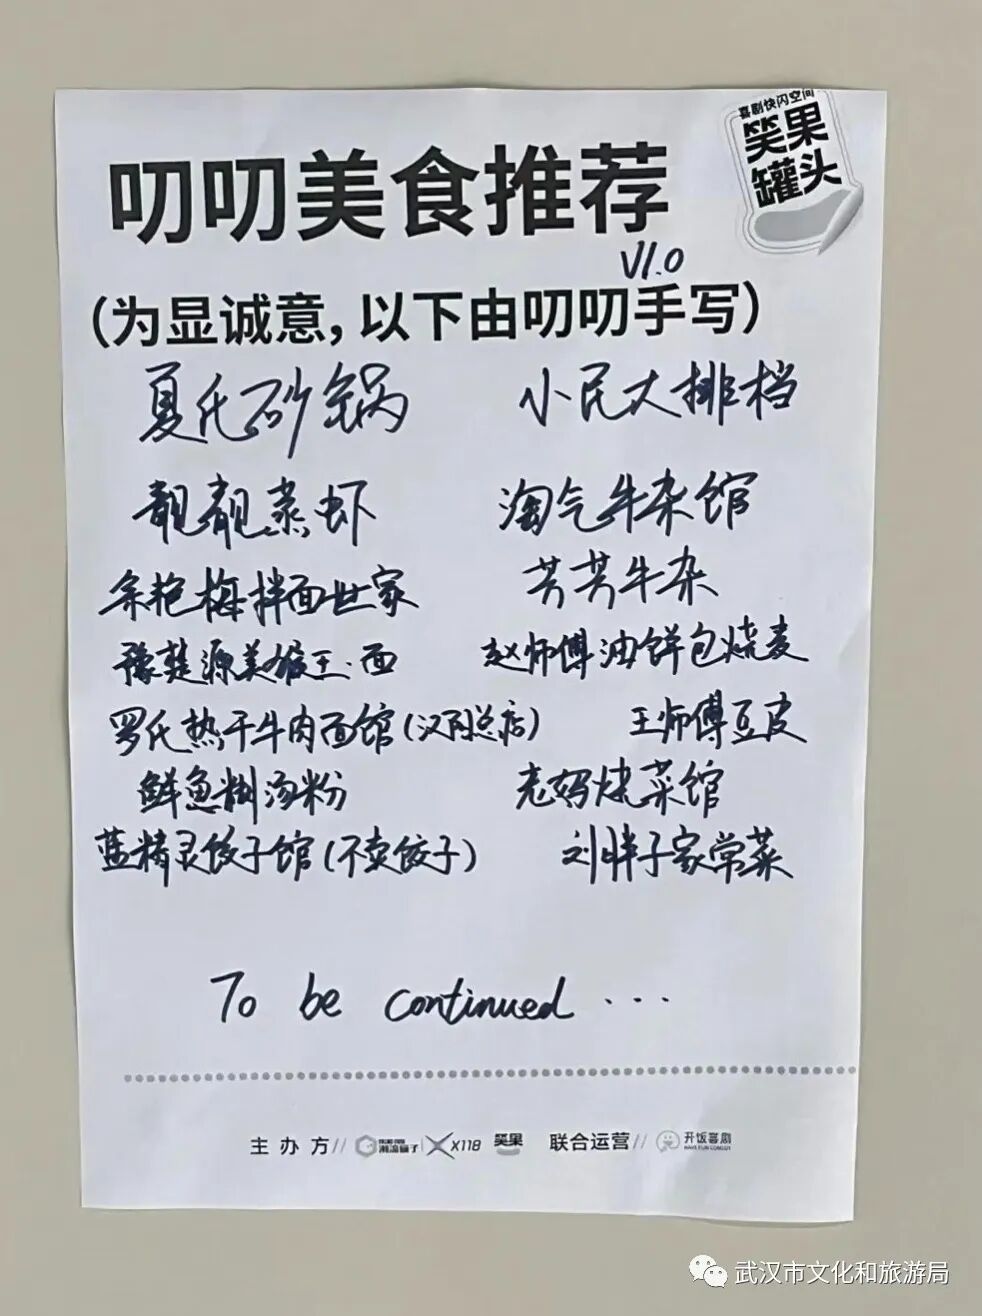 喜剧快闪空间
笑果
罐头
叨叨美食推荐
V1.0
（为显诚意，以下由叨叨手写）
夏氏砂锅 小民大排档
靓靓蒸虾 淘气牛杂馆
余艳梅拌面世家 芳芳牛杂
豫楚源美猴王·面 赵师傅油饼包烧麦
罗氏热干牛肉面馆（汉阳总店） 王师傅豆皮
鲜鱼糊汤粉 老妈烧菜馆
蓝精灵饺子馆（不卖饺子） 刘胖子家常菜
To be continued ...
主办方// 潮流盒子 X118 笑果 联合运营// 开饭喜剧
武汉市文化和旅游局